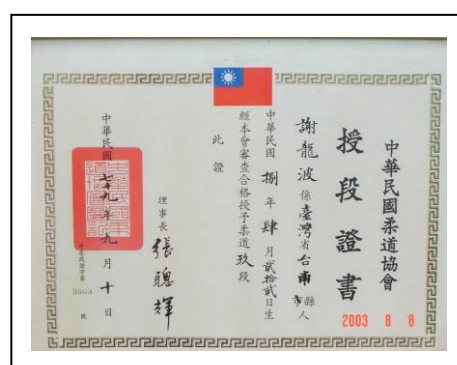 中華民國柔道協會
授段證書
謝龍波係臺灣省台南縣市人
中華民國捌年肆月貳拾貳日生
經本會審查合格授予柔道玖段
此證
理事長 張聰輝
中華民國七十九年九月十日
2003 8 8